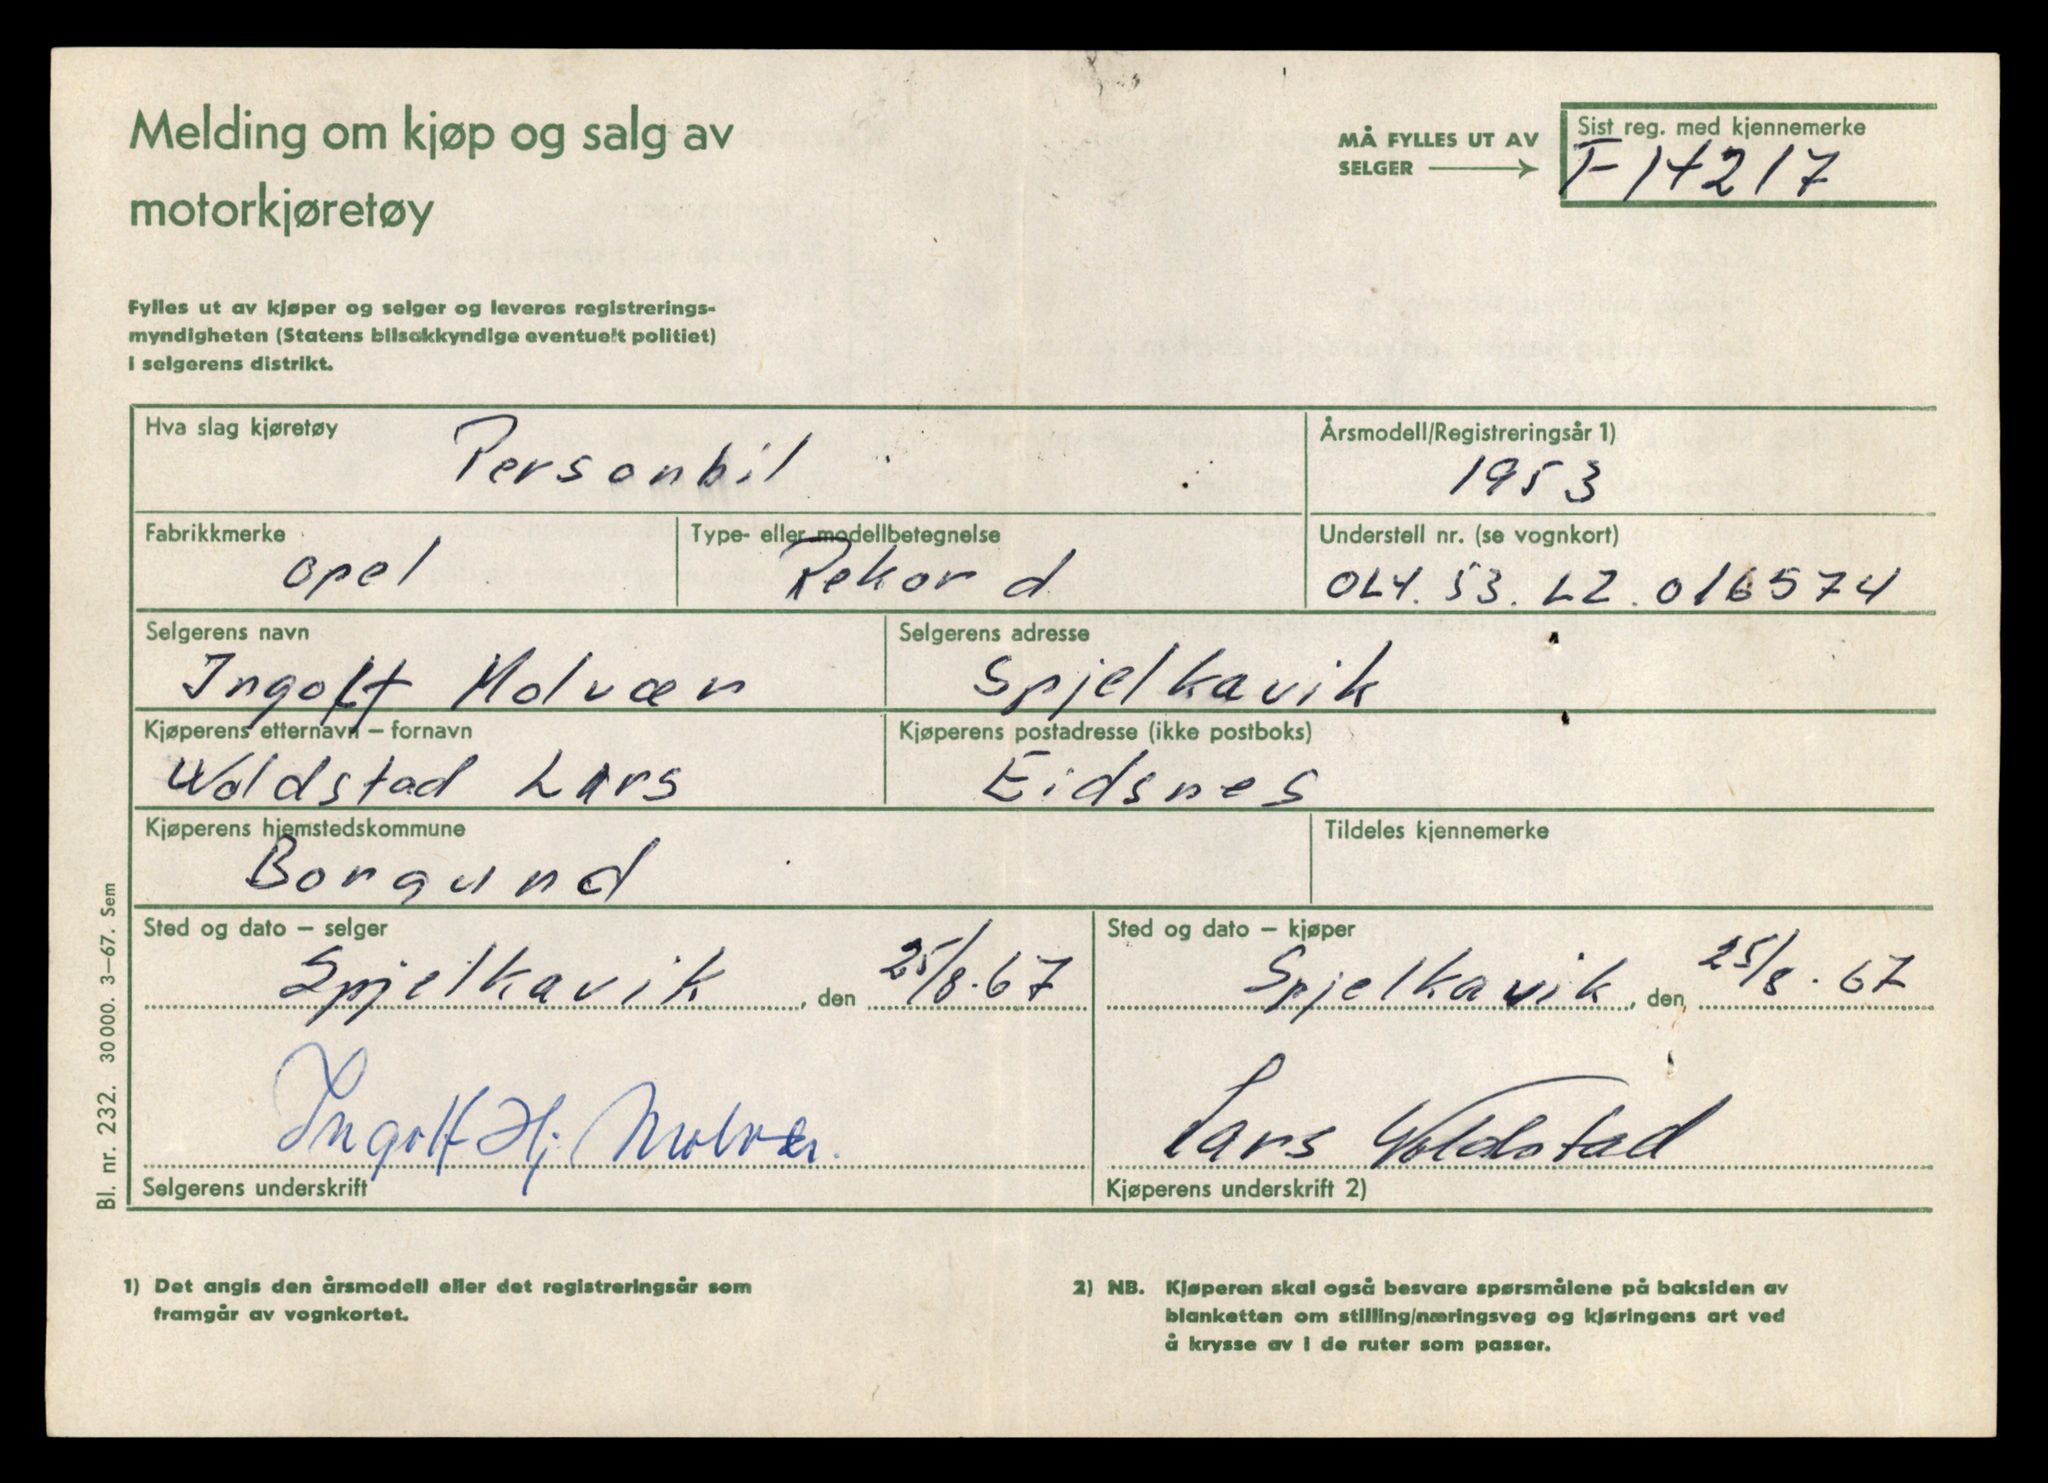 Melding om kjøp og salg av
motorkjøretøy
MÅ FYLLES UT AV
SELGER
Sist reg. med kjennemerke
T-14217
Fylles ut av kjøper og selger og leveres registrerings-
myndigheten (Statens bilsakkyndige eventuelt politiet)
i selgerens distrikt.
Hva slag kjøretøy
Personbil
Årsmodell/Registreringsår 1)
1953
Fabrikkmerke
Opel
Type- eller modellbetegnelse
Rekord
Understell nr. (se vognkort)
OLY. 53. LZ. 016574
Selgerens navn
Ingolf Molvær
Selgerens adresse
Spjelkavik
Kjøperens etternavn – fornavn
Woldstad Lars
Kjøperens postadresse (ikke postboks)
Eidsnes
Kjøperens hjemstedskommune
Borgund
Tildeles kjennemerke
Sted og dato – selger
Spjelkavik, den 25/8.67
Sted og dato – kjøper
Spjelkavik, den 25/8.67
Ingolf Hj. Molvær.
Selgerens underskrift
Lars Woldstad
Kjøperens underskrift 2)
Bl. nr. 232. 30 000. 3–67. Sem
1) Det angis den årsmodell eller det registreringsår som
framgår av vognkortet.
2) NB. Kjøperen skal også besvare spørsmålene på baksiden av
blanketten om stilling/næringsveg og kjøringens art ved
å krysse av i de ruter som passer.